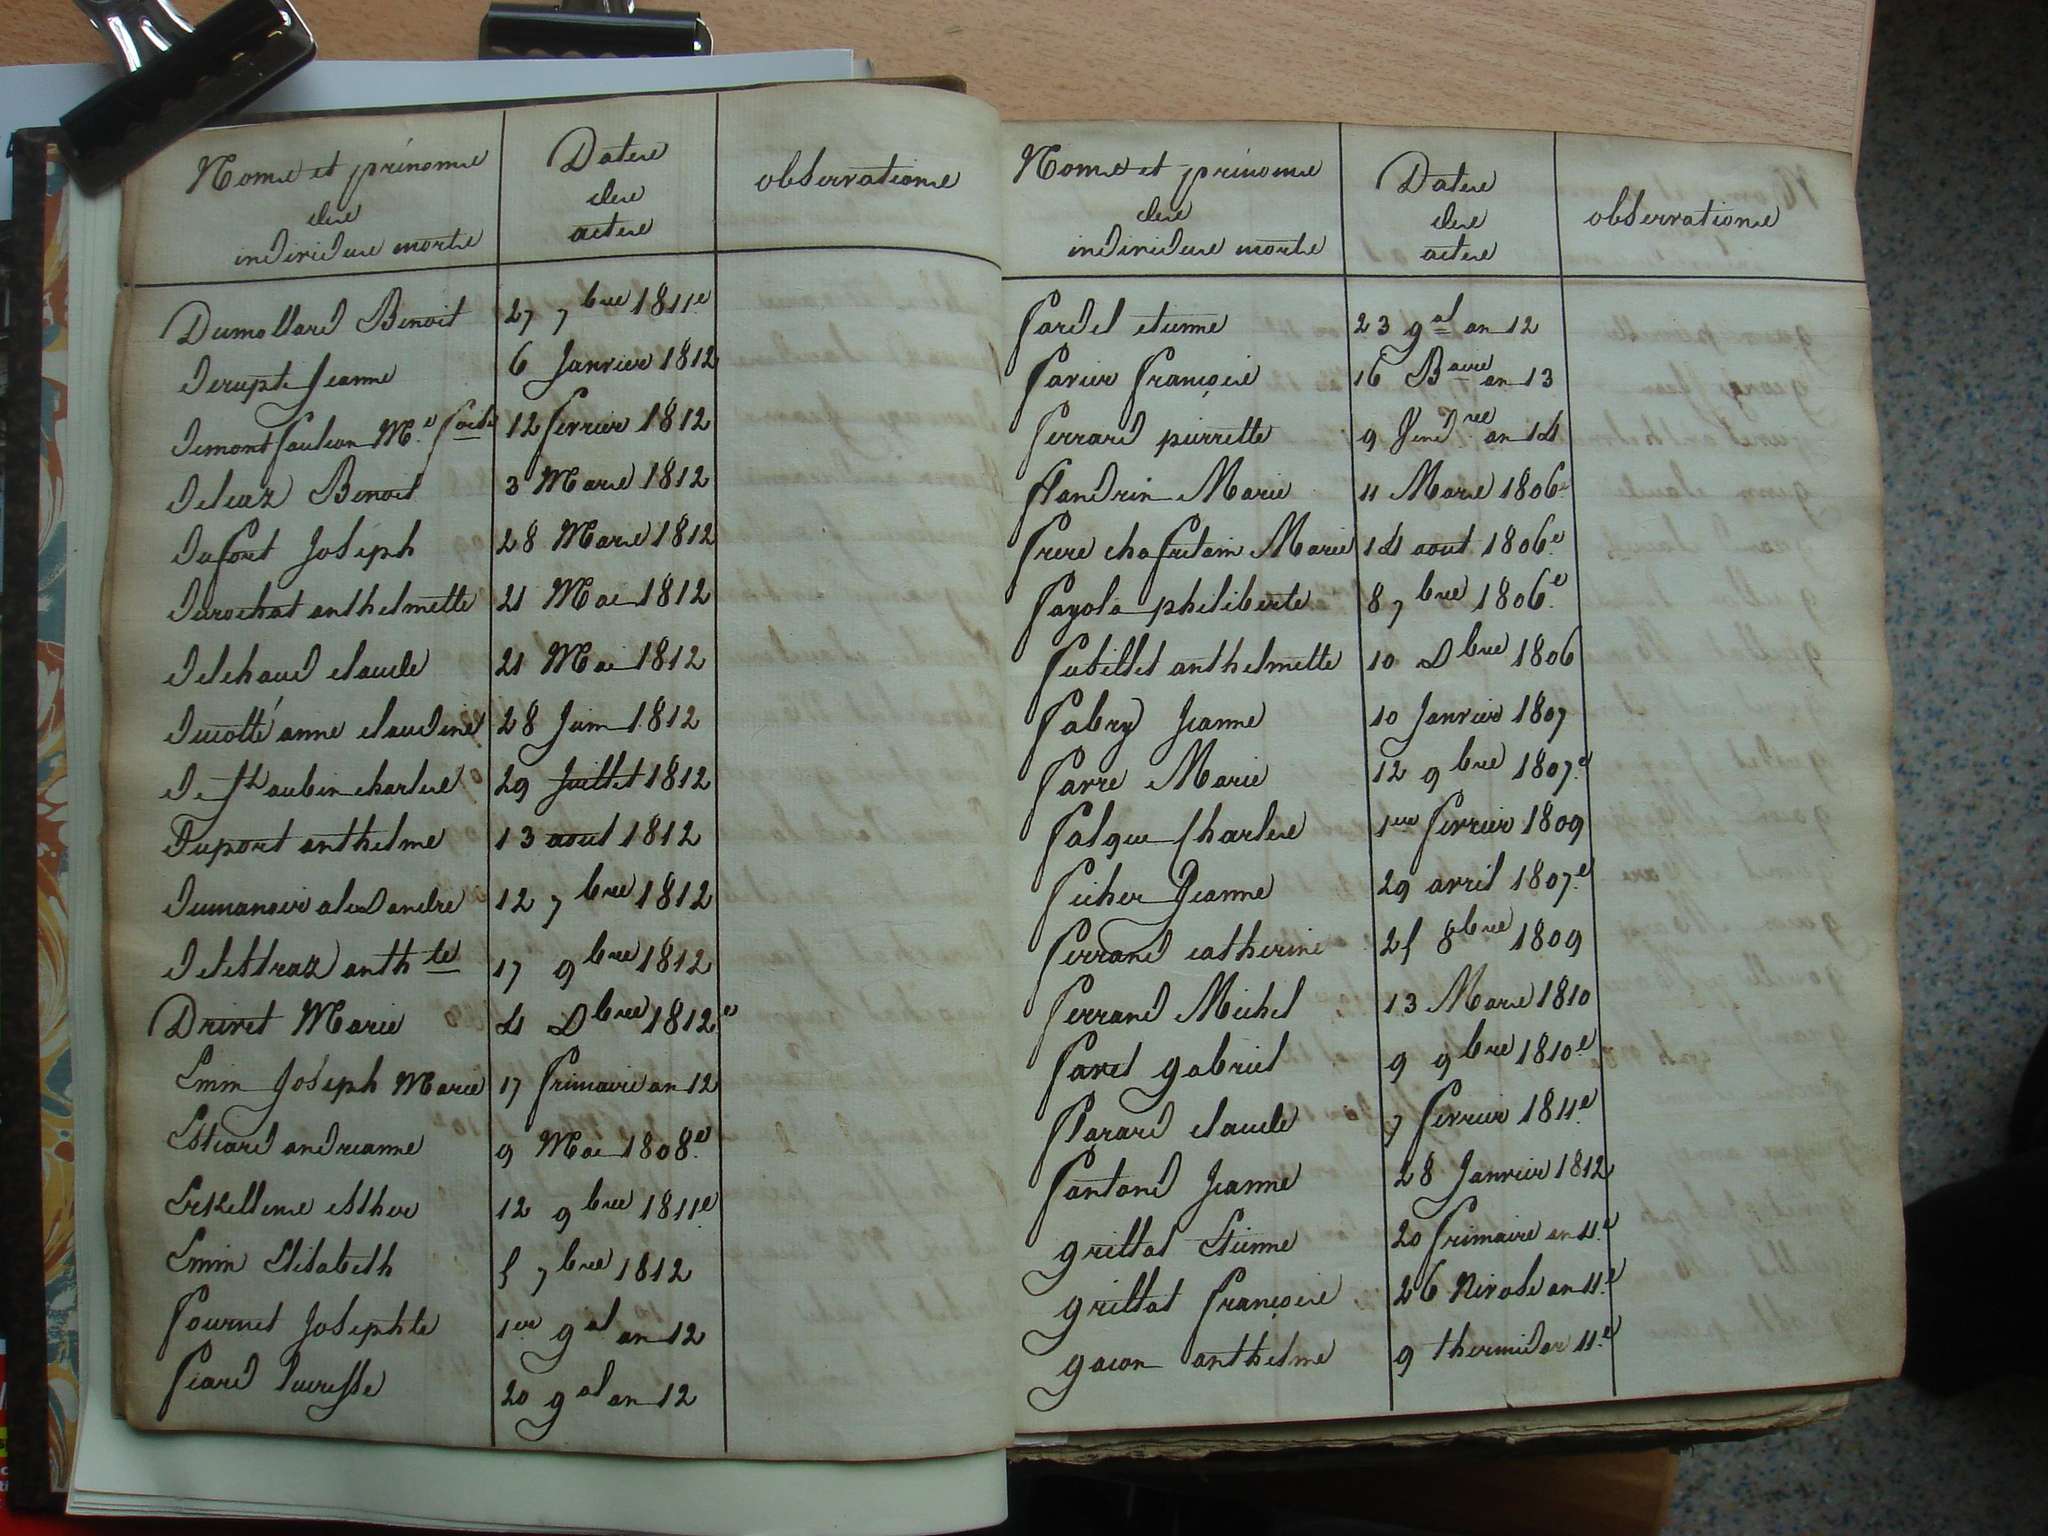 Noms et prénoms
des
individus morts
Dates
des
actes
observations
Dumollard Benoit 27 7bre 1811e
Derupt Jeanne 6 Janvier 1812
12 fevrier 1812
Benoit 3 Mars 1812
Dufort Joseph 28 Mars 1812
Durochat anthelmette 21 Mai 1812
Delchaud claude 21 Mai 1812
anne claudine 28 Juin 1812
De St aubin charles 29 Juillet 1812
Duport anthelme 13 aout 1812
Dumanoir alexandre 12 7bre 1812
Delestraz anthte 17 9bre 1812
Drivet Marie 4 Dbre 1812e
Emin Joseph Marie 17 frimaire an 12
andrianne 9 Mai 1808e
esther 12 9bre 1811e
Emin Elisabeth 5 7bre 1812
fournet Josephte 1er gal an 12
Lucresse 20 gal an 12
Noms et prénoms
des
individus morts
Dates
des
actes
observations
fardel etienne 23 gal an 12
favier françoise 16 Baire an 13
ferrard pierrette 9 Vendre an 14
flandrin Marie 11 Mars 1806e
frere chafritain Marie 14 aout 1806e
fayola philiberte 8 7bre 1806e
fubillet anthelmette 10 Dbre 1806
fabry Jeanne 10 Janvier 1807
favre Marie 12 9bre 1807e
falque Charles 1er fevrier 1809
ficher Jeanne 29 avril 1807e
ferrand catherine 25 8bre 1809
ferrand Michel 13 Mars 1810
favet gabriel 9 9bre 1810e
claude 7 fevrier 1811e
fantond Jeanne 28 Janvier 1812
grillat Etienne 20 frimaire an 11e
grillat françoise 26 Nivose an 11e
gacon anthelme 9 thermidor 11e